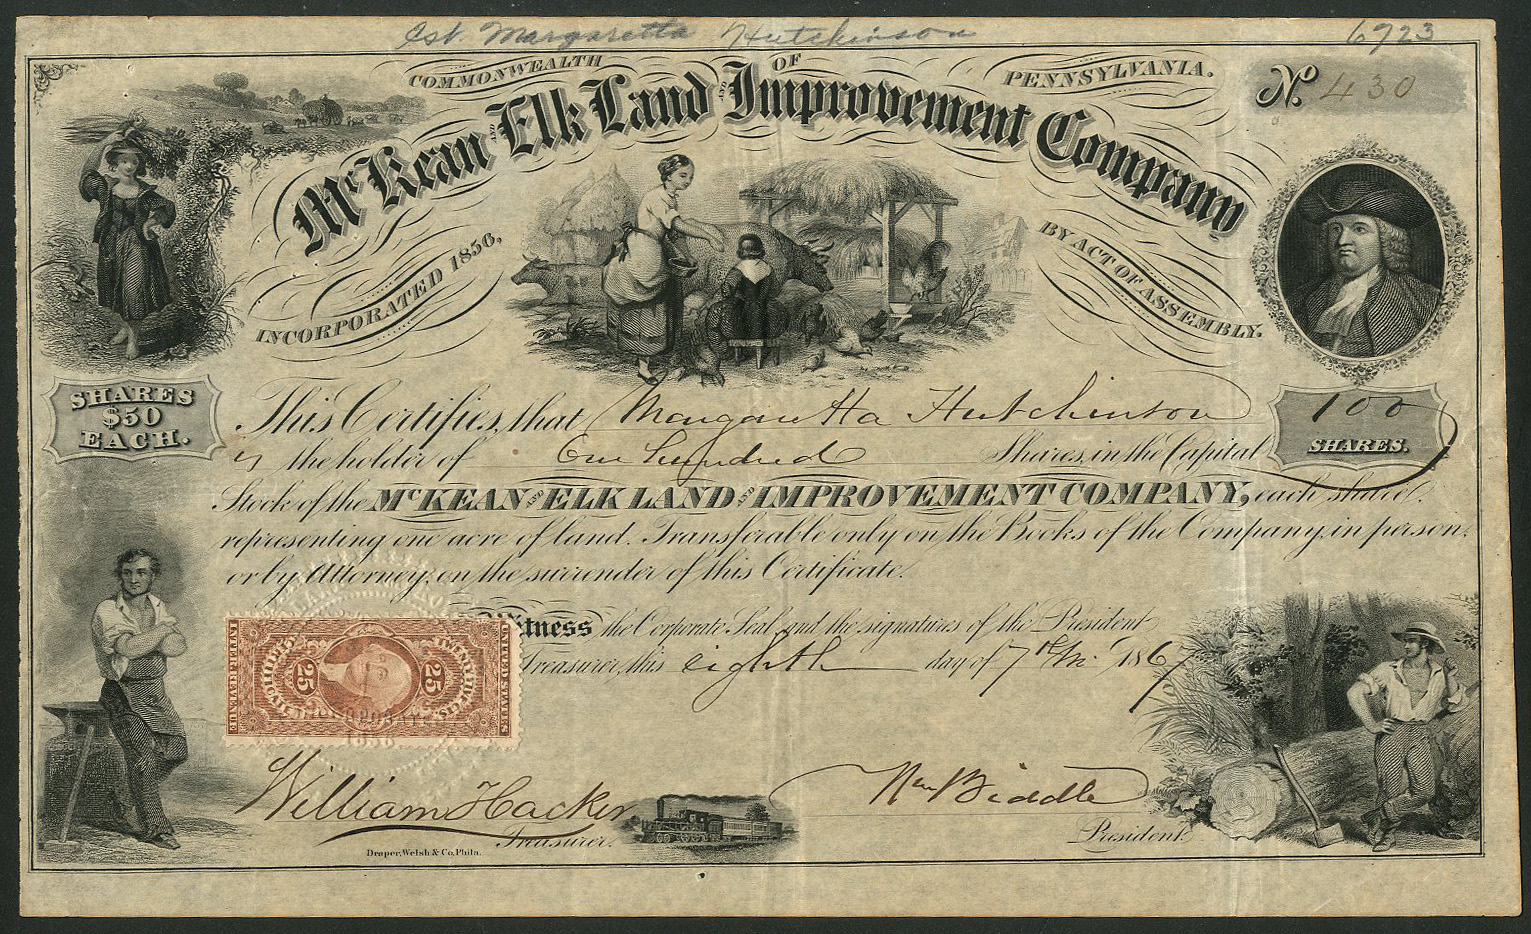 Est. Margaretta Hutchinson 6723
COMMONWEALTH OF PENNSYLVANIA.
No. 430
McKean AND Elk Land AND Improvement Company
INCORPORATED 1856,
BY ACT OF ASSEMBLY.
SHARES
$50
EACH.
100
SHARES.
This Certifies, that Margaretta Hutchinson
is the holder of One Hundred Shares, in the Capital
Stock of the McKEAN AND ELK LAND AND IMPROVEMENT COMPANY, each share
representing one acre of land. Transferable only on the Books of the Company, in person,
or by Attorney, on the surrender of this Certificate.
Witness the Corporate Seal and the signatures of the President
Treasurer, this eighth day of 7th Mo. 1867
UNITED STATES
TWENTY FIVE CTS.
25 25
INTER. REVENUE
1856
William Hacker
Treasurer.
Wm Biddle
President.
Draper, Welsh & Co. Phila.